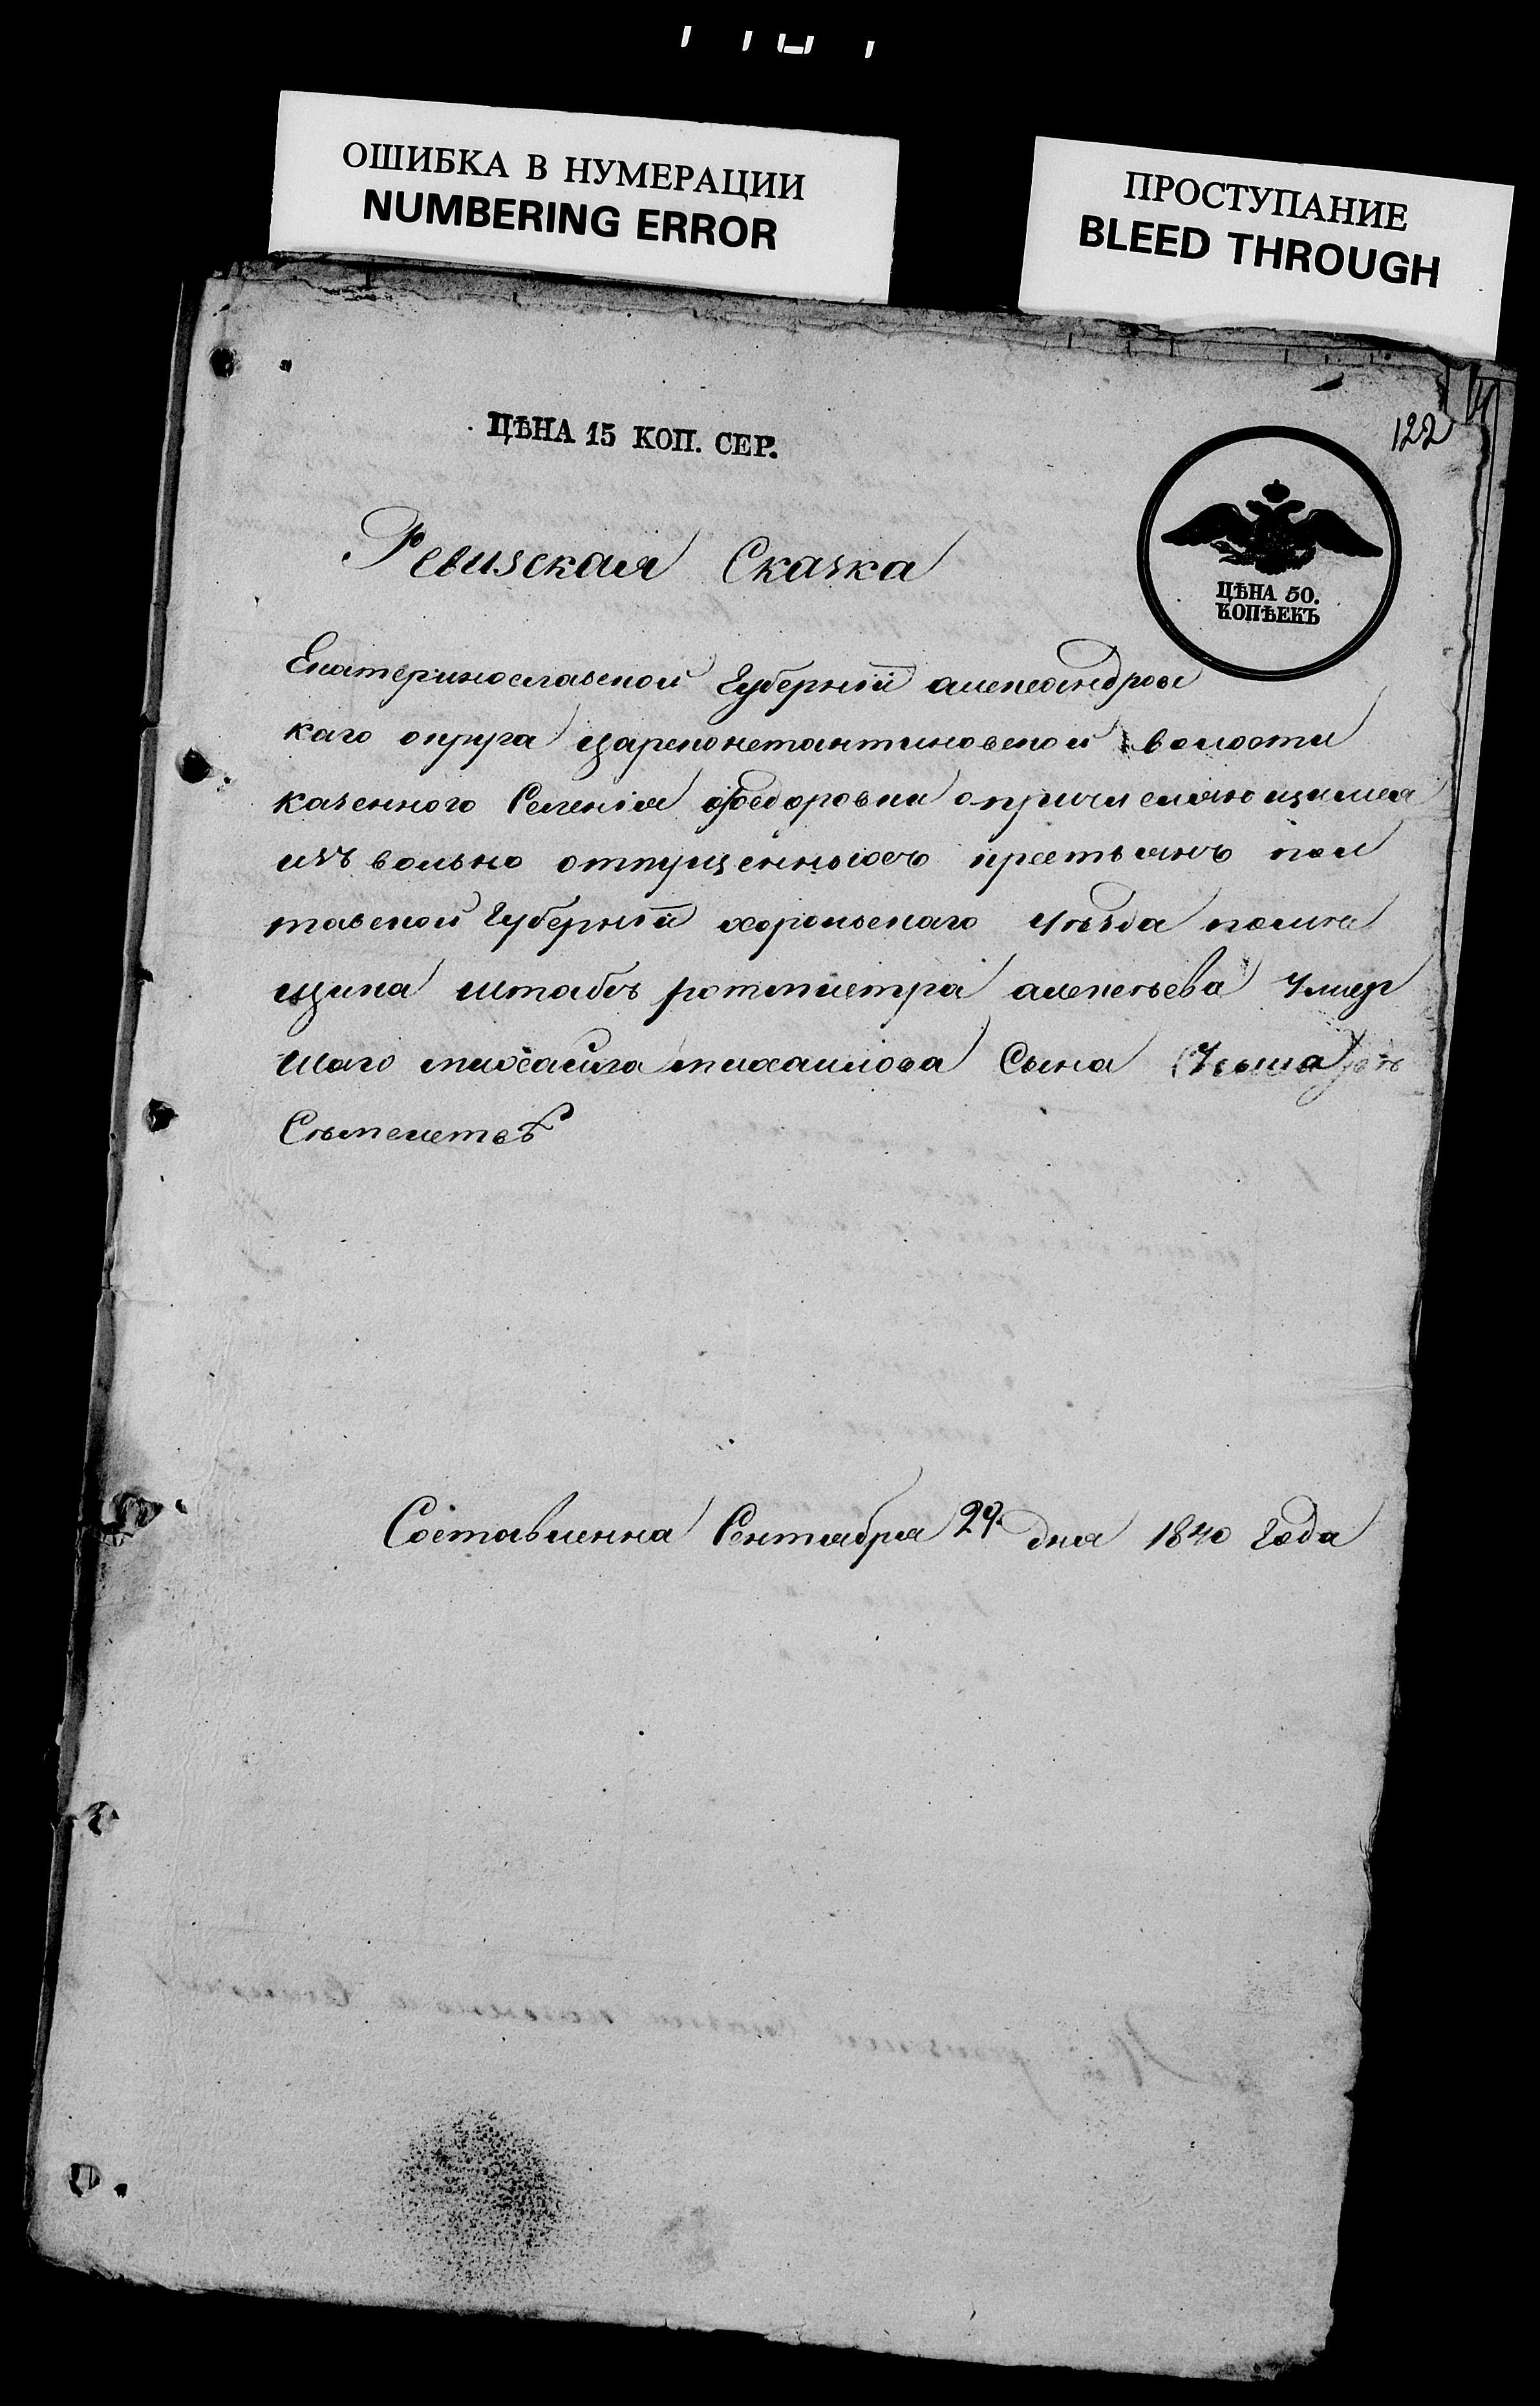 ОШИБКА В НУМЕРАЦИИ
NUMBERING ERROR
ПРОСТУПАНИЕ
BLEED THROUGH
122
ЦѢНА 15 КОП. СЕР.
ЦѢНА 50.
КОПѢЕКЪ
Ревизская Сказка
Екатеринославской Губернiи александровс
каго округа Цареконстантиновской волости
казенного Селенiя Федоровки опричисляющимся
изъ вольно отпущенныхъ крестьянъ пол
тавской Губернiи хорольскаго уѣзда помѣ
щика штабъ ротмистра алексѣева умер
шаго михайла михаилова Сына
Сѣмействѣ
Составленна Сентября 29 дня 1840 года